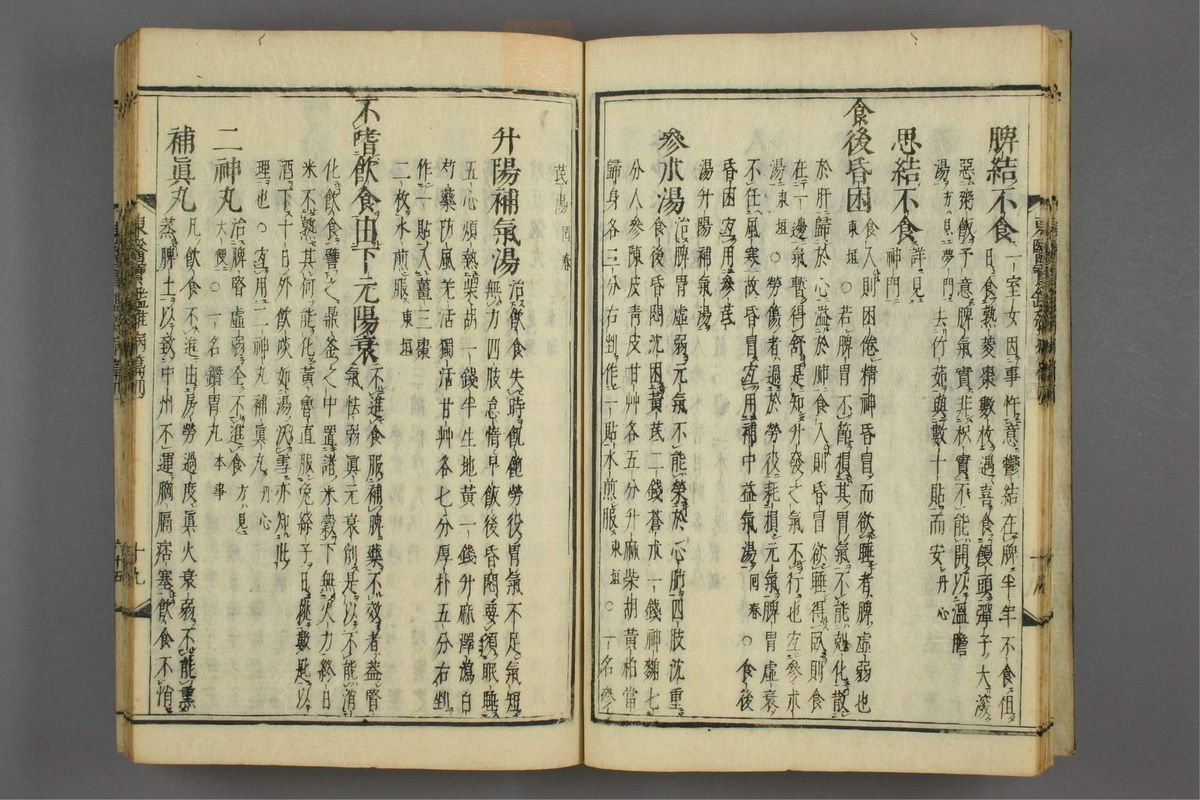 脾結不食 一室女因事忤意鬱結在脾半年不食但
日食熟菱棗數枚遇喜食饅頭彈子大深
惡粥飯予意脾氣實非枳實不能開以溫膽
湯方見夢門去竹茹與數十貼而安丹心
思結不食 詳見神門
食後昏困 食入則困倦精神昏冒而欲睡者脾虛弱也
東垣○若脾胃不節損其胃氣不能剋化散
於肝歸於心溢於肺食入則昏冒欲睡得臥則食
在一邊氣暫得舒是知升發之氣不行也宜參朮
湯東垣○勞傷者過於勞役耗損元氣脾胃虛衰
不任風寒故昏冒宜用補中益氣湯回春○食後
昏困宜用參芪
湯升陽補氣湯
參朮湯 治脾胃虛弱元氣不能榮於心肺四肢沈重
食後昏悶沈困黃芪二錢蒼朮一錢神麴七
分人參陳皮靑皮甘艸各五分升麻柴胡黃柏當
歸身各三分右剉作一貼水煎服東垣○一名參
芪湯回春
升陽補氣湯 治飮食失時飢飽勞役胃氣不足氣短
無力四肢怠惰早飯後昏悶要須眠睡
五心煩熱柴胡一錢半生地黃一錢升麻澤瀉白
芍藥防風羌活獨活甘艸各七分厚朴五分右剉
作一貼入薑三棗
二枚水煎服東垣
不嗜飮食由下元陽衰 不進食服補脾藥不效者蓋腎
氣怯弱眞元衰削是以不能消
化飮食譬之鼎釜之中置諸米穀下無火力終日
米不熟其何能化黃魯直服兔絲子日挾數匙以
酒下十日外飮啖如湯沃雪亦知此
理也○宜用二神丸補眞丸丹心
二神丸 治脾胃虛弱全不進食方見
大便○一名鑽胃丸本事
補眞丸 凡飮食不進由房勞過度眞火衰弱不能熏
蒸脾土以致中州不運胸膈痞塞飮食不消
東醫寶鑑雜病篇四
十九